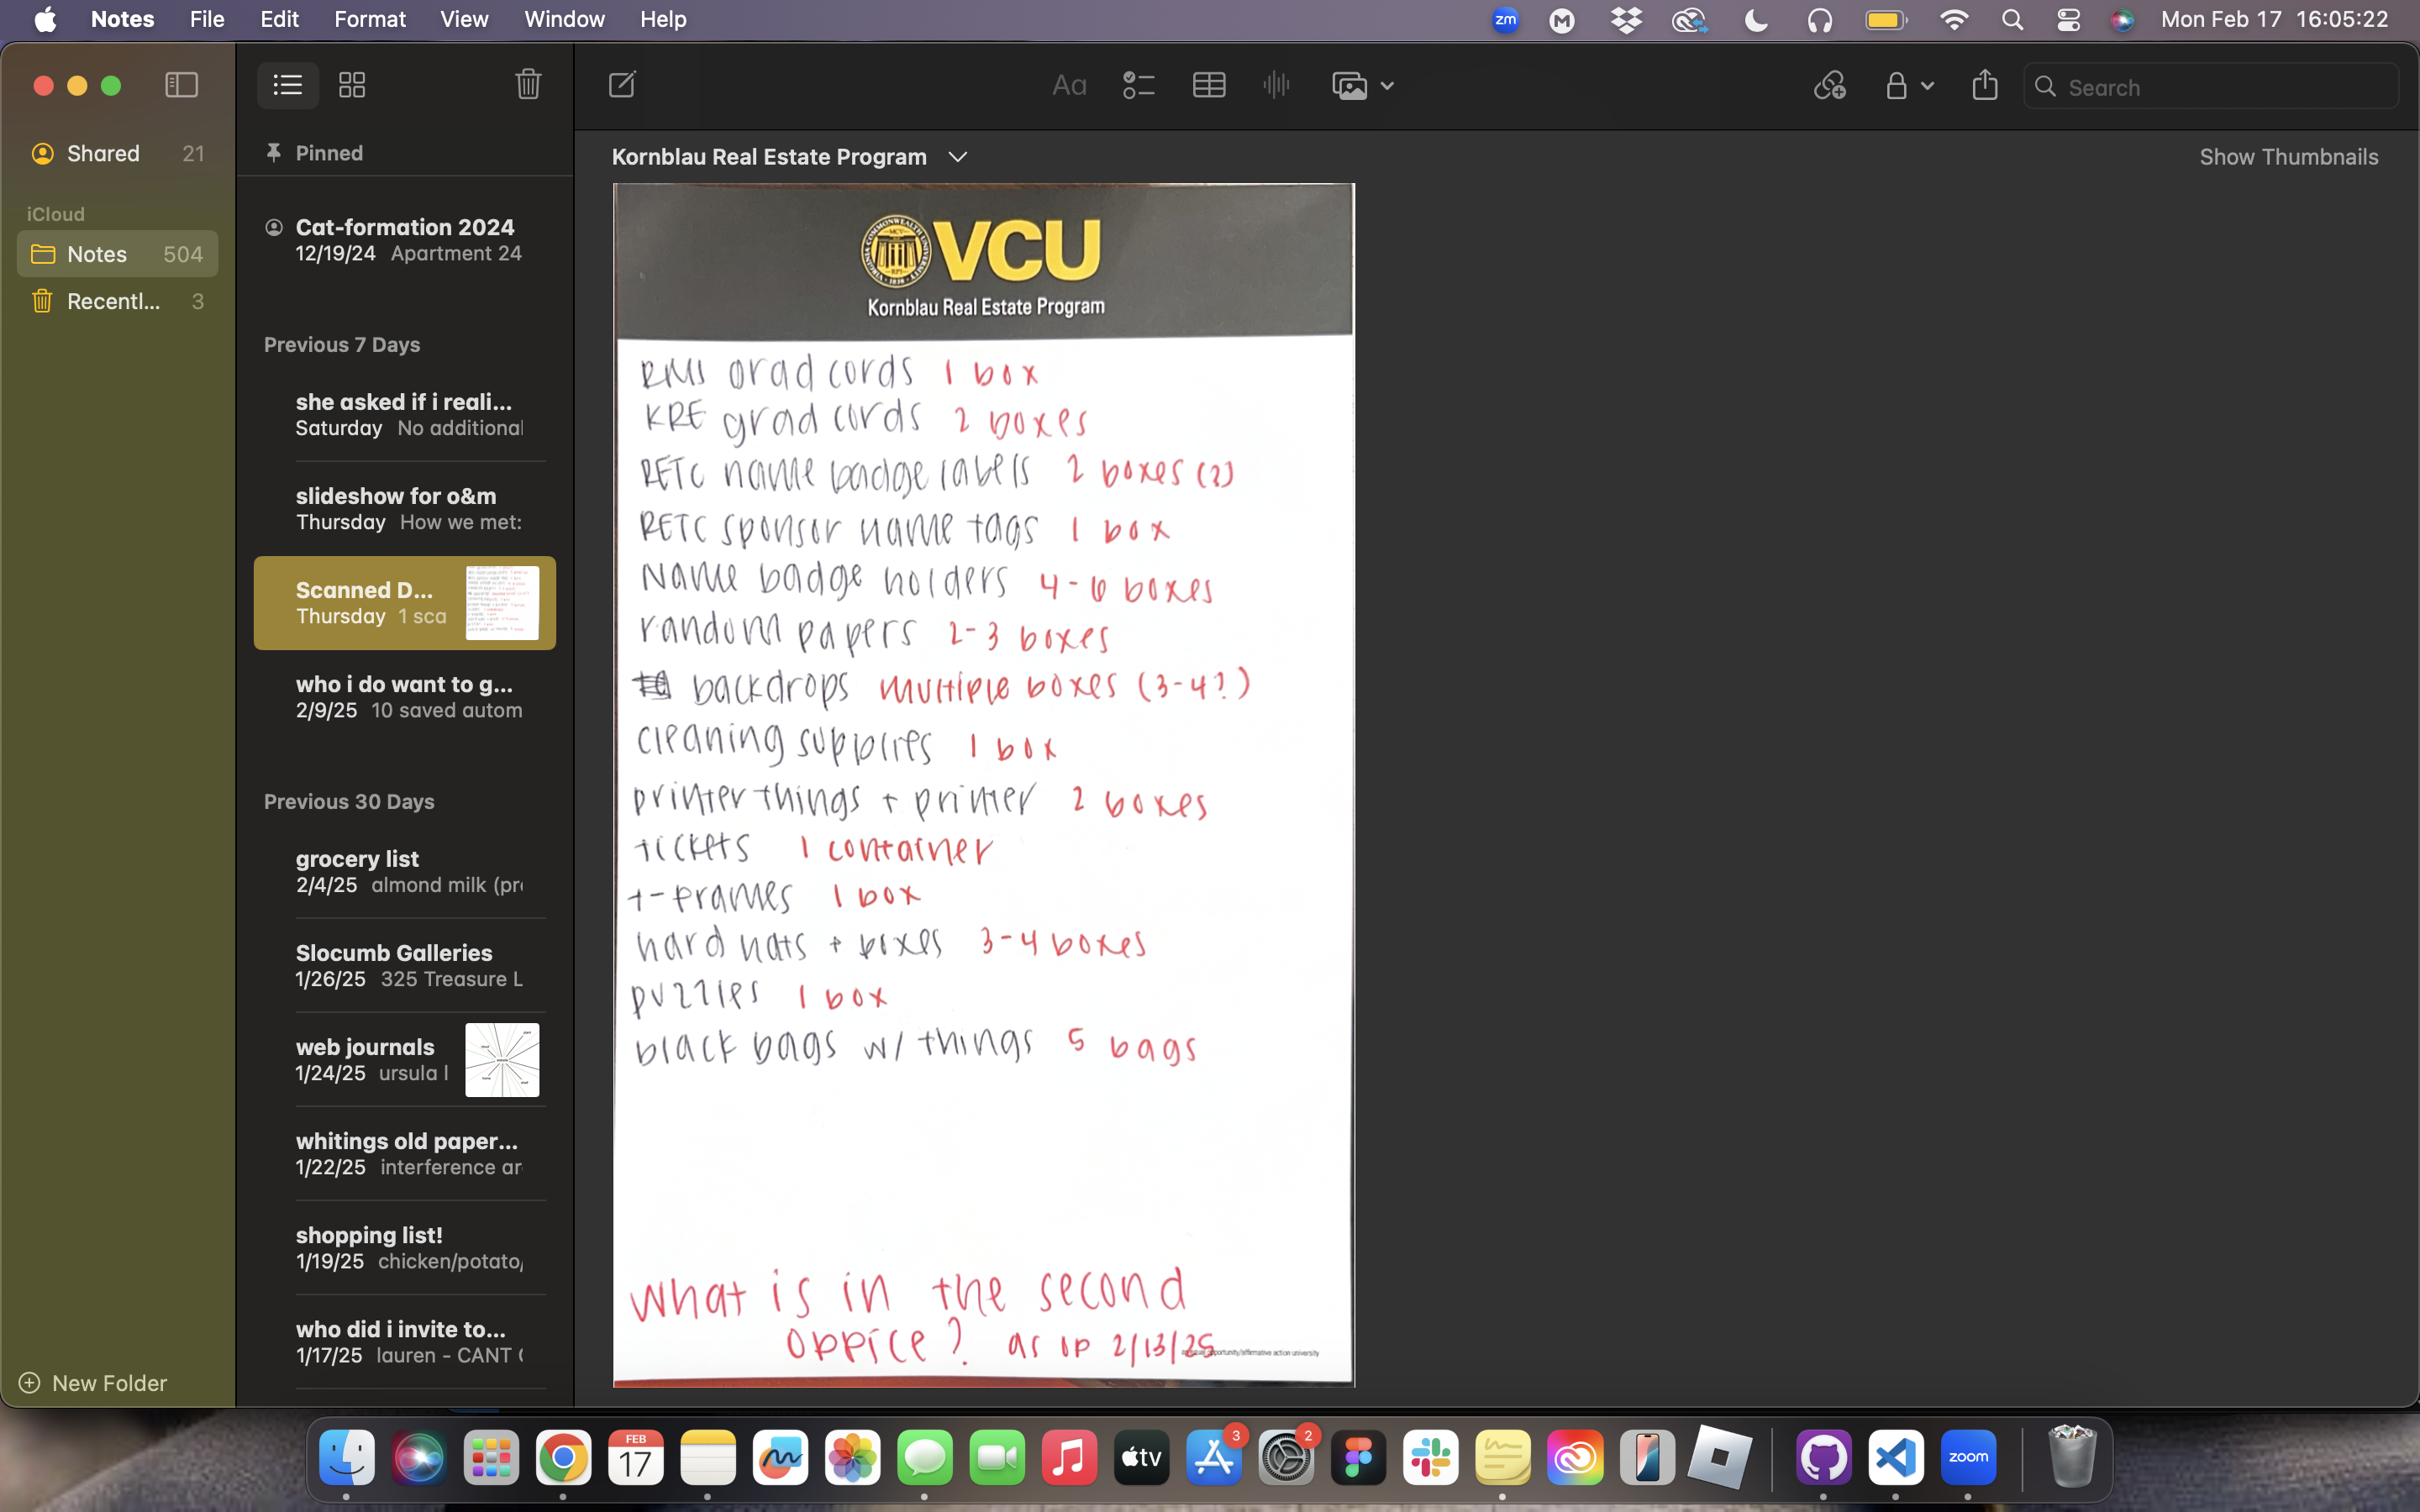 Notes File Edit Format View Window Help zm Mon Feb 17 16:05:22
Search
Shared 21
iCloud
Notes 504
Recentl... 3
New Folder
Pinned
Cat-formation 2024
12/19/24 Apartment 24
Previous 7 Days
she asked if i reali...
Saturday No additional
slideshow for o&m
Thursday How we met:
Scanned D...
Thursday 1 sca
who i do want to g...
2/9/25 10 saved autom
Previous 30 Days
grocery list
2/4/25 almond milk (pr
Slocumb Galleries
1/26/25 325 Treasure L
web journals
1/24/25 ursula l
whitings old paper...
1/22/25 interference ar
shopping list!
1/19/25 chicken/potato,
who did i invite to...
1/17/25 lauren - CANT
Kornblau Real Estate Program Show Thumbnails
VCU
Kornblau Real Estate Program
RMI grad cords 1 box
KRE grad cords 2 boxes
RETC name badge labels 2 boxes (2)
RETC sponsor name tags 1 box
Name badge holders 4-6 boxes
random papers 2-3 boxes
backdrops multiple boxes (3-4?)
cleaning supplies 1 box
printer things + printer 2 boxes
tickets 1 container
t-frames 1 box
hard hats + boxes 3-4 boxes
puzzles 1 box
black bags w/ things 5 bags
what is in the second
office? as of 2/13/25
opportunity/affirmative action university
FEB
17
tv
3
2
zoom